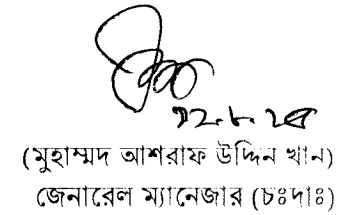 (মুহাম্মদ আশরাফ উদ্দিন খান)
জেনারেল ম্যানেজার (চঃদাঃ)